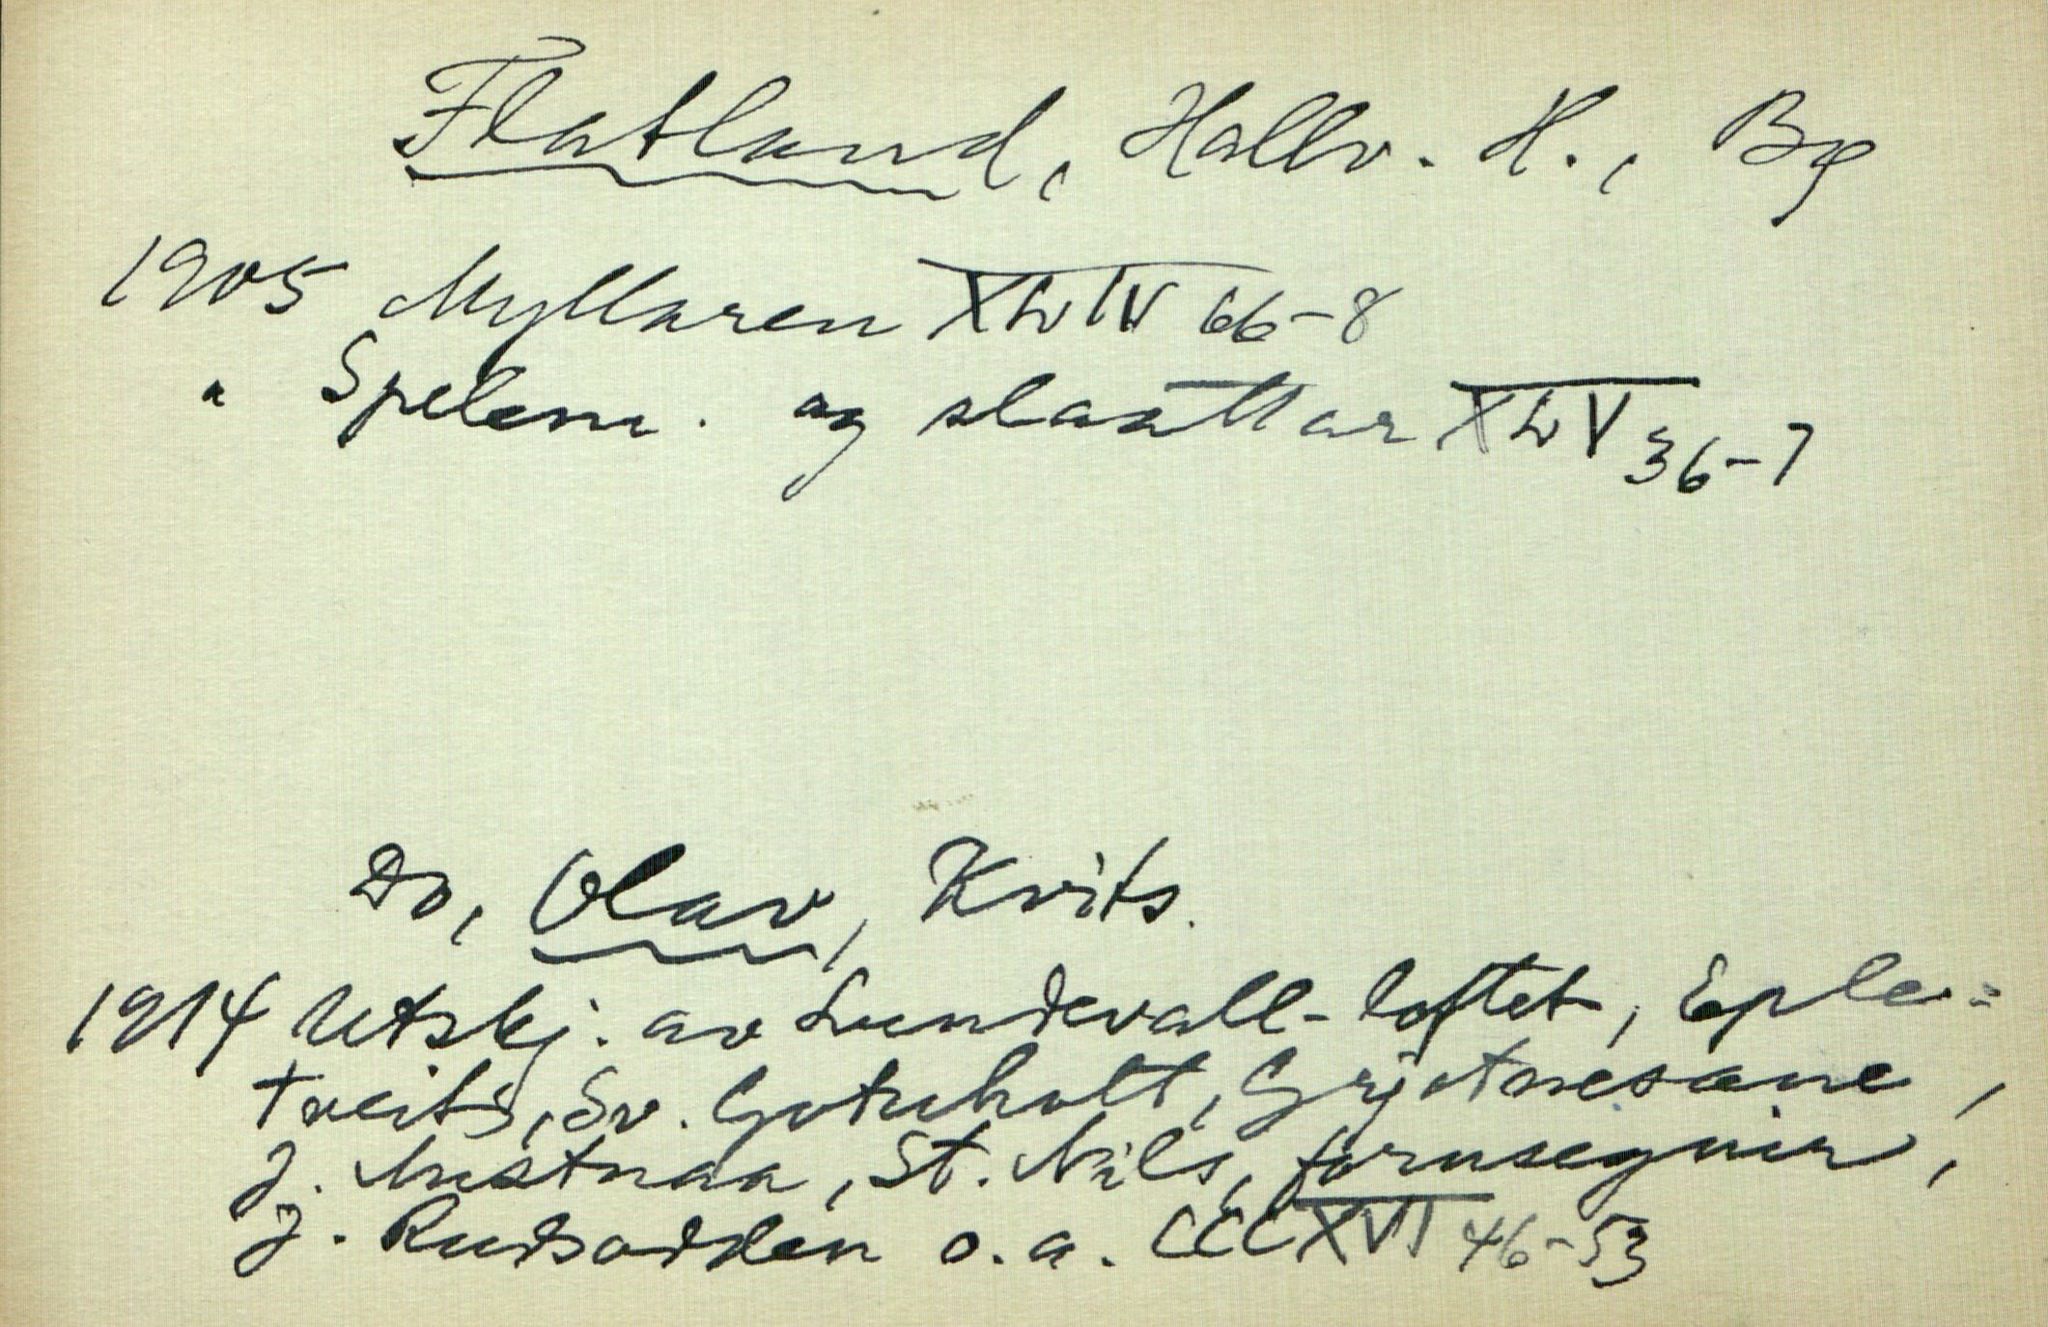 Flatland, Hallv. H., Bø
1905 Myllaren XLIV 66-8
" Spelem. og slaattar XLV 36-7
Do, Olav, Kvits.
1914 Utskj. av Lundevall-loftet, Eple-
tveits, Sv. Gotuholt, Grjotnesane,
J. Austnaa, St. Nils, fornsegnir,
J. Rudsodden o.a. CCCXVI 46-53